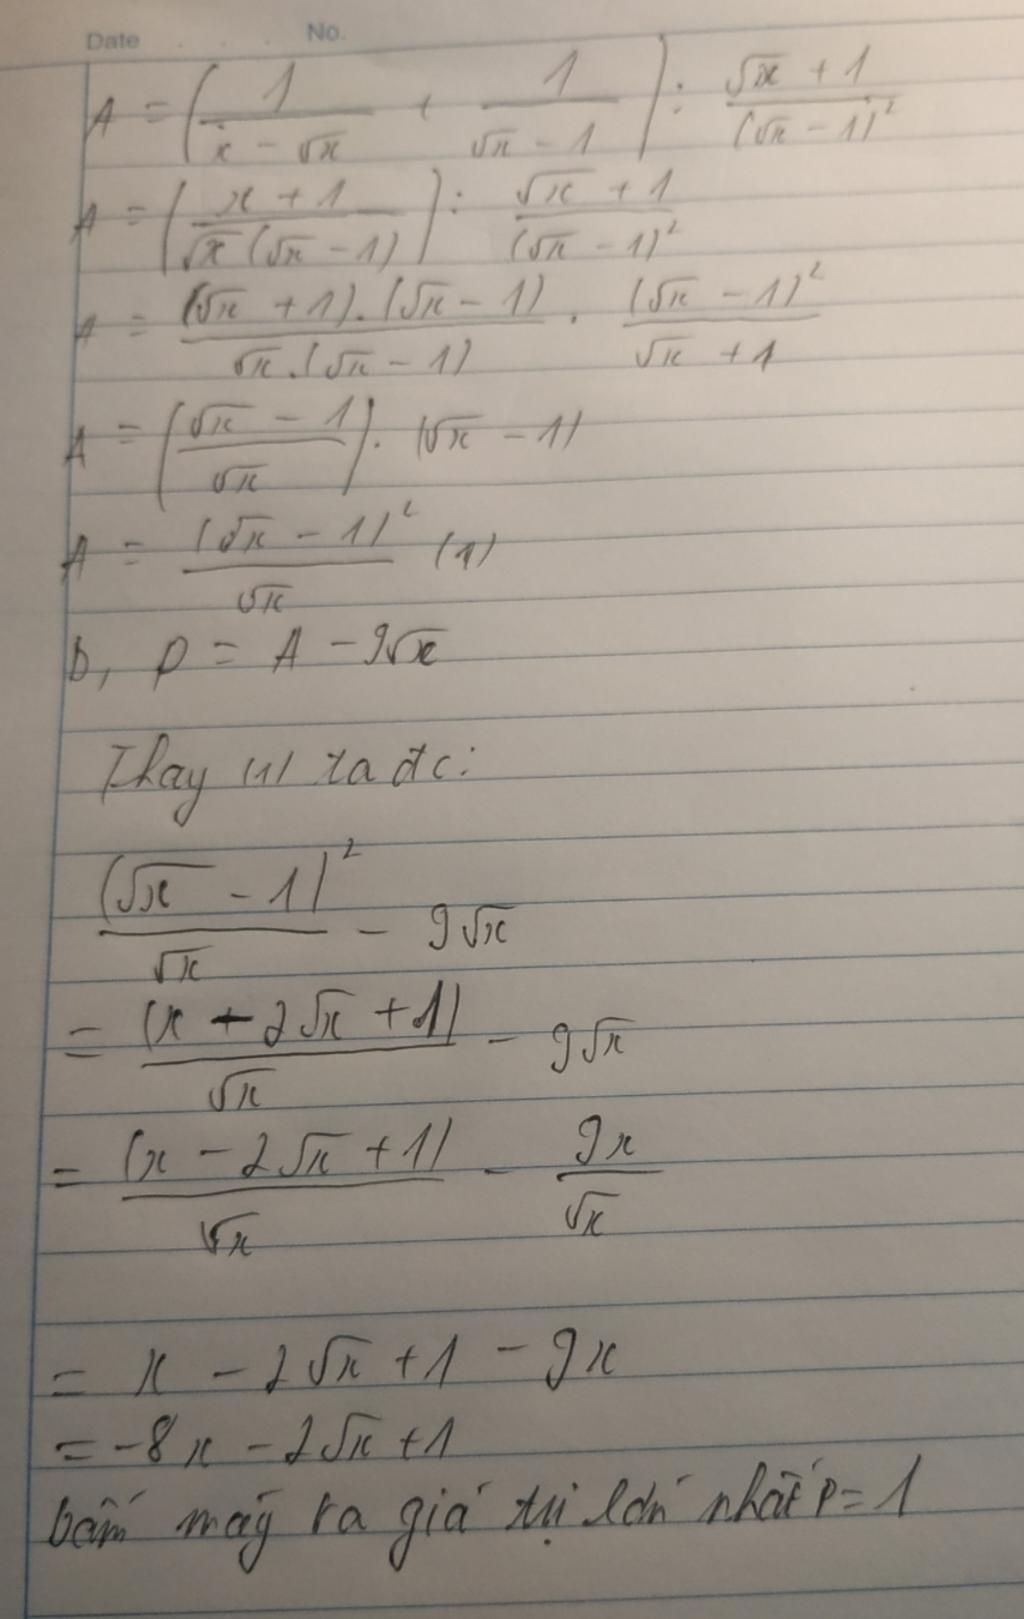 Date . . . No.
A = (1/(x - √x) + 1/(√x - 1)) : (√x + 1)/(√x - 1)²
A = ((x + 1)/(√x (√x - 1))) : (√x + 1)/(√x - 1)²
A = ((√x + 1).(√x - 1))/(√x.(√x - 1)) . (√x - 1)²/(√x + 1)
A = ((√x - 1)/√x) . (√x - 1)
A = (√x - 1)²/√x (1)
b, P = A - 9√x
Thay (1) ta đc:
(√x - 1)²/√x - 9√x
= (x - 2√x + 1)/√x - 9√x
= (x - 2√x + 1)/√x - 9x/√x
= x - 2√x + 1 - 9x
= -8x - 2√x + 1
bấm máy ra giá trị lớn nhất P = 1